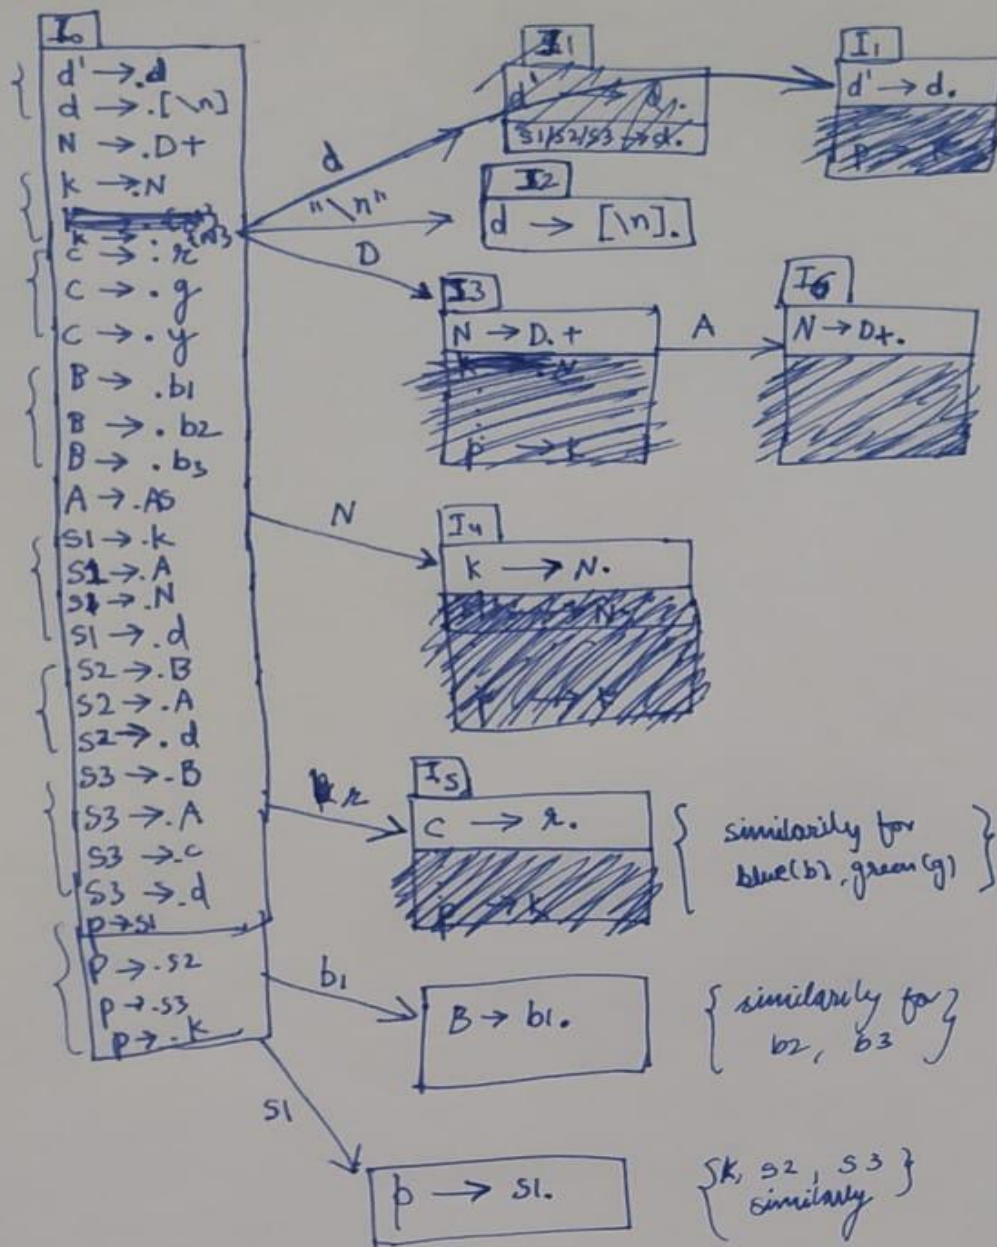 I0
d' → .d
d → .[\n]
N → .D+
k → .N
k → .{N}
c → .r
C → .g
C → .y
B → .b1
B → .b2
B → .b3
A → .AS
S1 → .k
S1 → .A
S1 → .N
S1 → .d
S2 → .B
S2 → .A
S2 → .d
S3 → .B
S3 → .A
S3 → .c
S3 → .d
P → S1
P → .S2
P → .S3
P → .k
d
"\n"
D
N
r
b1
S1
I1
d'
S1/S2/S3 → d.
I1
d' → d.
I2
d → [\n].
I3
N → D.+
A
I6
N → D+.
I4
k → N.
I5
C → r.
{ similarily for
blue(b), green(g) }
B → b1.
{ similarily for
b2, b3 }
p → S1.
{k, S2, S3}
similarly